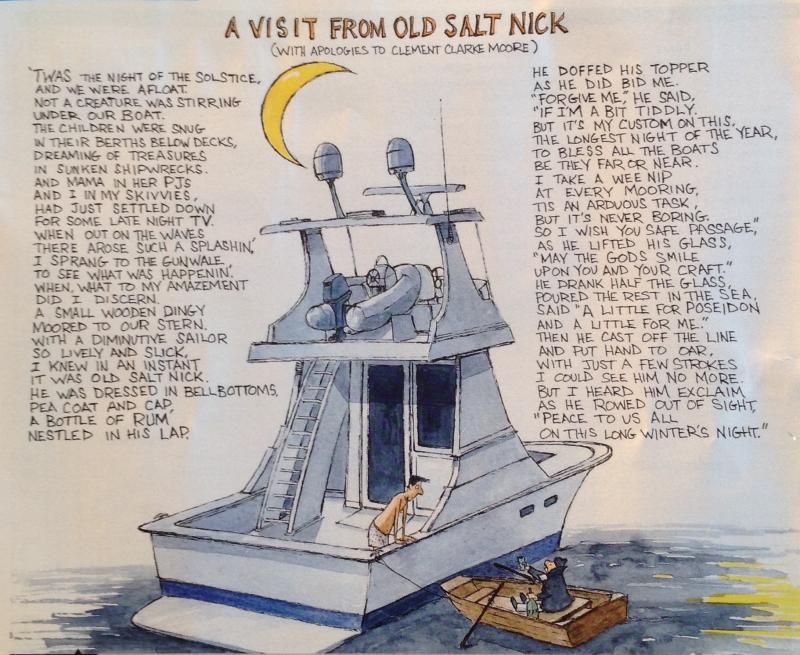 A VISIT FROM OLD SALT NICK
(WITH APOLOGIES TO CLEMENT CLARKE MOORE)
'TWAS THE NIGHT OF THE SOLSTICE,
AND WE WERE AFLOAT.
NOT A CREATURE WAS STIRRING
UNDER OUR BOAT.
THE CHILDREN WERE SNUG
IN THEIR BERTHS BELOW DECKS,
DREAMING OF TREASURES
IN SUNKEN SHIPWRECKS.
AND MAMA IN HER PJS
AND I IN MY SKIVVIES,
HAD JUST SETTLED DOWN
FOR SOME LATE NIGHT TV.
WHEN OUT ON THE WAVES
THERE AROSE SUCH A SPLASHIN',
I SPRANG TO THE GUNWALE
TO SEE WHAT WAS HAPPENIN'.
WHEN, WHAT TO MY AMAZEMENT
DID I DISCERN.
A SMALL WOODEN DINGY
MOORED TO OUR STERN.
WITH A DIMINUTIVE SAILOR
SO LIVELY AND SLICK,
I KNEW IN AN INSTANT
IT WAS OLD SALT NICK.
HE WAS DRESSED IN BELLBOTTOMS,
PEA COAT AND CAP,
A BOTTLE OF RUM
NESTLED IN HIS LAP.
HE DOFFED HIS TOPPER
AS HE DID BID ME.
"FORGIVE ME," HE SAID,
"IF I'M A BIT TIDDLY.
BUT IT'S MY CUSTOM ON THIS,
THE LONGEST NIGHT OF THE YEAR,
TO BLESS ALL THE BOATS
BE THEY FAR OR NEAR.
I TAKE A WEE NIP
AT EVERY MOORING,
TIS AN ARDUOUS TASK,
BUT IT'S NEVER BORING.
SO I WISH YOU SAFE PASSAGE,"
AS HE LIFTED HIS GLASS,
"MAY THE GODS SMILE
UPON YOU AND YOUR CRAFT."
HE DRANK HALF THE GLASS,
POURED THE REST IN THE SEA,
SAID "A LITTLE FOR POSEIDON
AND A LITTLE FOR ME."
THEN HE CAST OFF THE LINE
AND PUT HAND TO OAR,
WITH JUST A FEW STROKES
I COULD SEE HIM NO MORE.
BUT I HEARD HIM EXCLAIM
AS HE ROWED OUT OF SIGHT,
"PEACE TO US ALL
ON THIS LONG WINTER'S NIGHT."